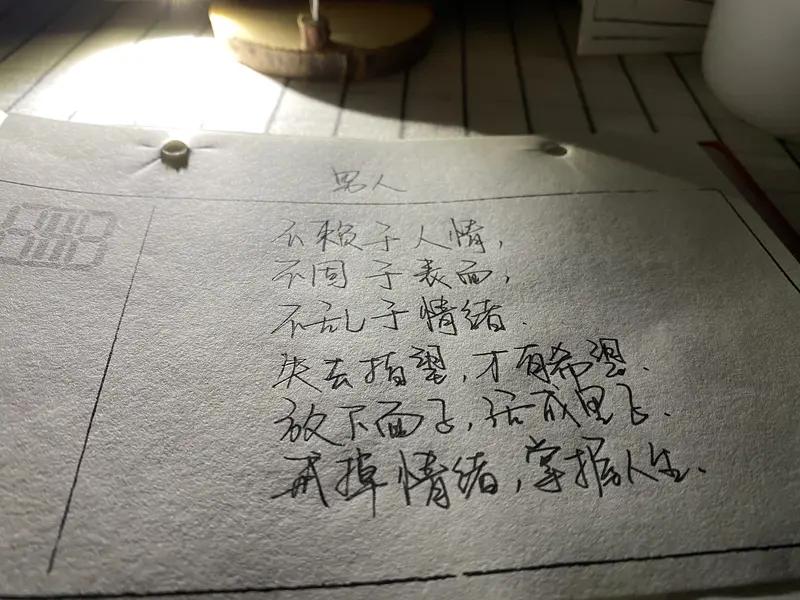 男人
不赖于人情,
不困于表面,
不乱于情绪.
失去指望,才有希望.
放下面子,活成里子.
戒掉情绪,掌握人生.